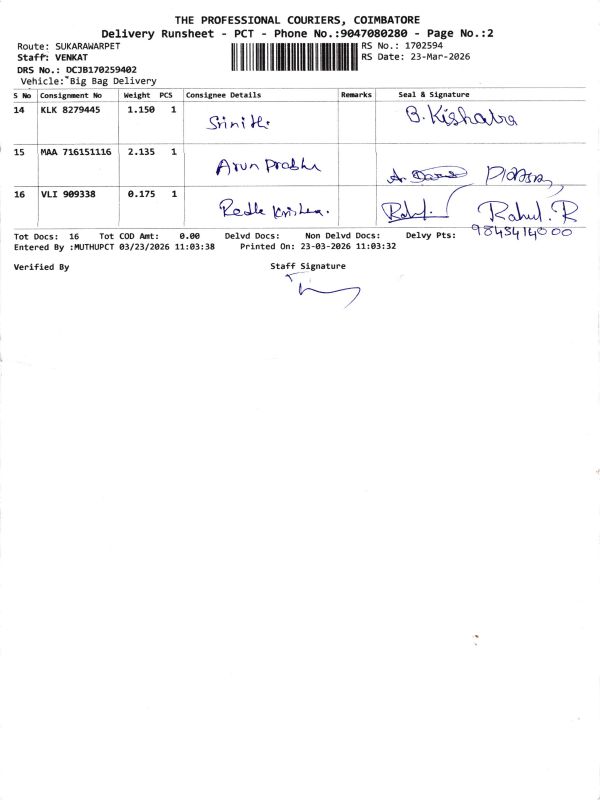 THE PROFESSIONAL COURIERS, COIMBATORE
Delivery Runsheet - PCT - Phone No.:9047080280 - Page No.:2
Route: SUKARAWARPET RS No.: 1702594
Staff: VENKAT RS Date: 23-Mar-2026
DRS No.: DCJB170259402
Vehicle:"Big Bag Delivery
S No Consignment No Weight PCS Consignee Details Remarks Seal & Signature
14 KLK 8279445 1.150 1 Srinithi B.Kishalra
15 MAA 716151116 2.135 1 Arun Prabhu
16 VLI 909338 0.175 1 Rahul.R
9843414000
Tot Docs: 16 Tot COD Amt: 0.00 Delvd Docs: Non Delvd Docs: Delvy Pts:
Entered By :MUTHUPCT 03/23/2026 11:03:38 Printed On: 23-03-2026 11:03:32
Verified By Staff Signature